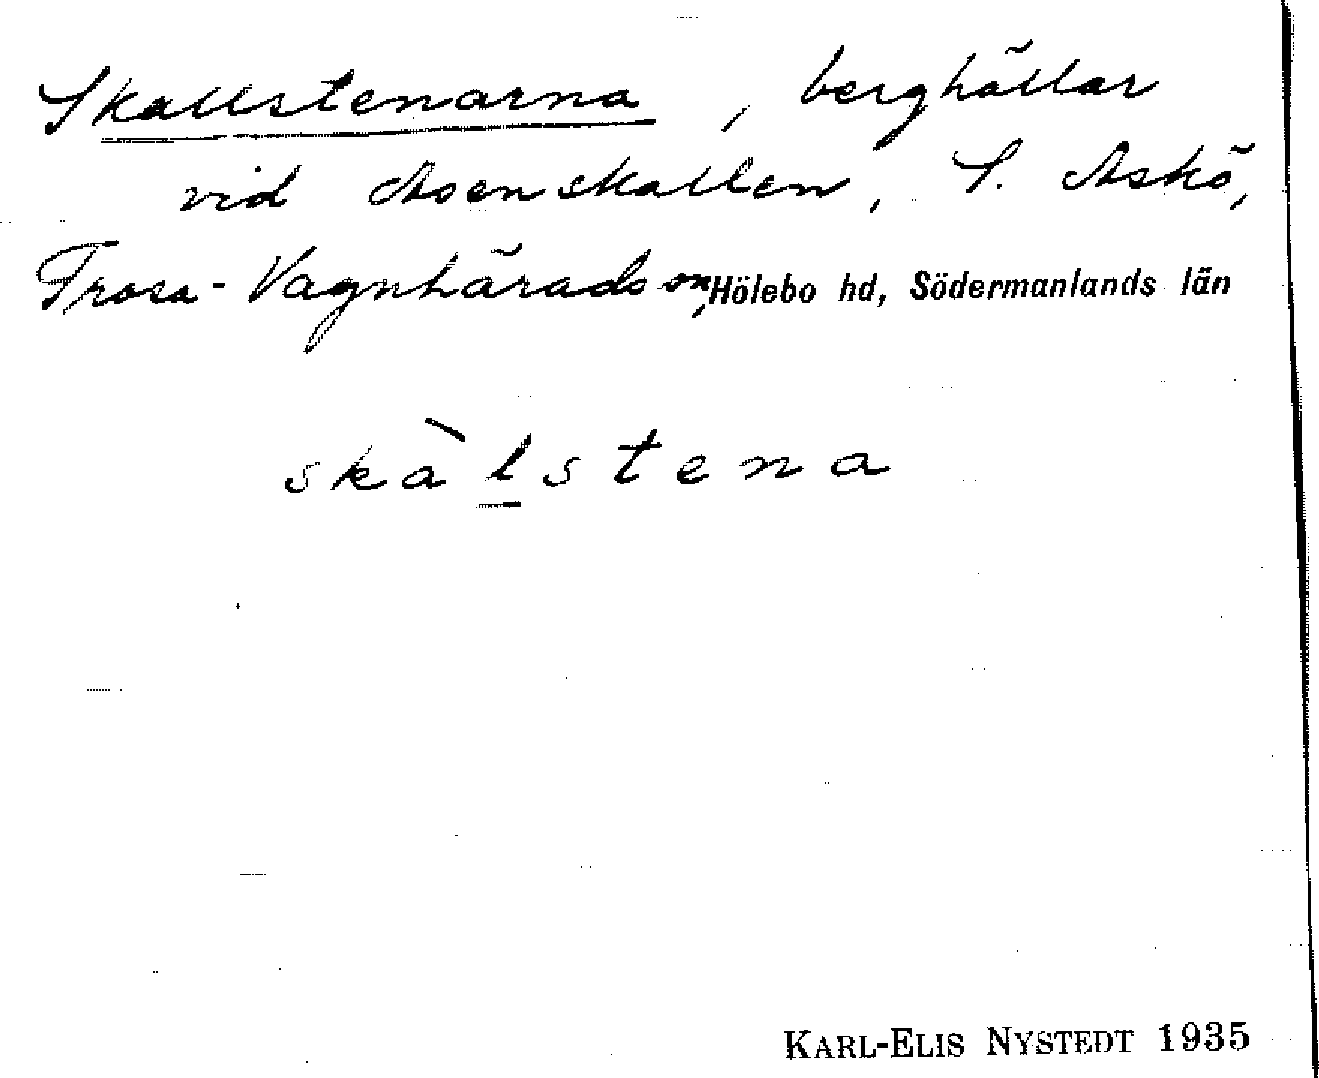 Skallstenarna, berghällar
vid Asenskallen, S. Askö,
Trosa-Vagnhärads sn, Hölebo hd, Södermanlands län
skàlstena
KARL-ELIS NYSTEDT 1935